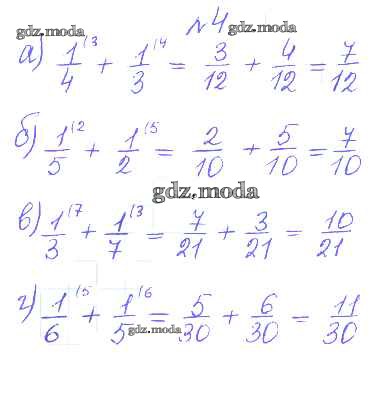 №4
gdz.moda gdz.moda
а) 1/4 ⁽³ + 1/3 ⁽⁴ = 3/12 + 4/12 = 7/12
б) 1/5 ⁽² + 1/2 ⁽⁵ = 2/10 + 5/10 = 7/10
gdz.moda
в) 1/3 ⁽⁷ + 1/7 ⁽³ = 7/21 + 3/21 = 10/21
г) 1/6 ⁽⁵ + 1/5 ⁽⁶ = 5/30 + 6/30 = 11/30
gdz.moda